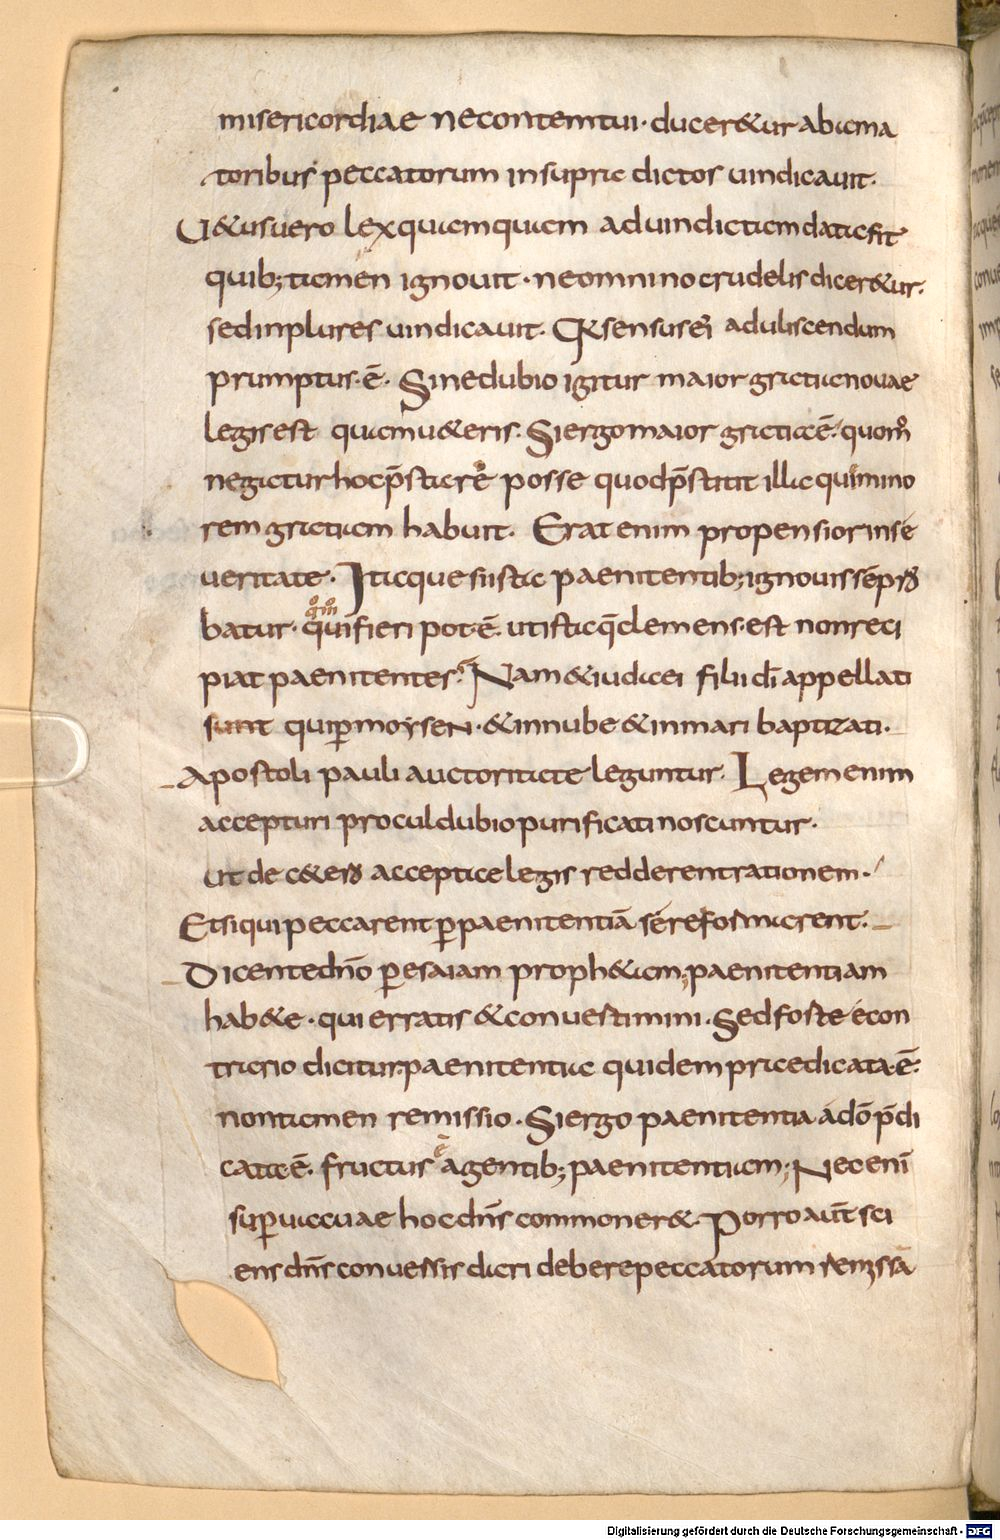 misericordiae necontemtui· ducer&ur abama
toribus peccatorum insupra dictos uindicauit·
U&usuero lexquamquam aduindictam datafit
quib; tamen ignouit · neomnino crudelis dicer&ur·
sedinplures uindicauit· Qr sensusei adulescendum
prumptus·ē· Sinedubio igitur maior gratia nouae
legis est quam u&eris· Siergomaior gratiaē· quom̊
negaturhocp̄starē posse quodp̄stitit illa quimino
rem gratiam habuit· Erat enim propensior inse
ueritate· Itaque siista paenitentib; ignouissep̄ro
batur· quifieri pot·ē· utistaq̄clemens·est nonreci
q̊m̊
piat paenitentes· Nam&iudaei filii dī appellati
sunt quip̱moysen·&innube &inmari baptizati·
Apostoli pauli auctoritate leguntur· Legem enim
accepturi proculdubio purificati noscuntur·
Ut de c&ero acceptae legis redderent rationem·
Etsiqui peccarent p̱paenitentiā sereformarent·
Dicentednō p̱esaiam proph&am; paenitentiam
hab&e · qui erratis &conuertimini· Sedforte econ
trario dicitur; paenitentia quidem praedicata·ē·
nontamen remissio · Siergo paenitentia adōp̄di
cataē· fructus ē agentib; paenitentiam; Nec enī
sup̱uacuae hocdn̄s commoner&· Porro aut̄ sci
ens dn̄s conuersis dari debere peccatorum remissā
Digitalisierung gefördert durch die Deutsche Forschungsgemeinschaft - DFG